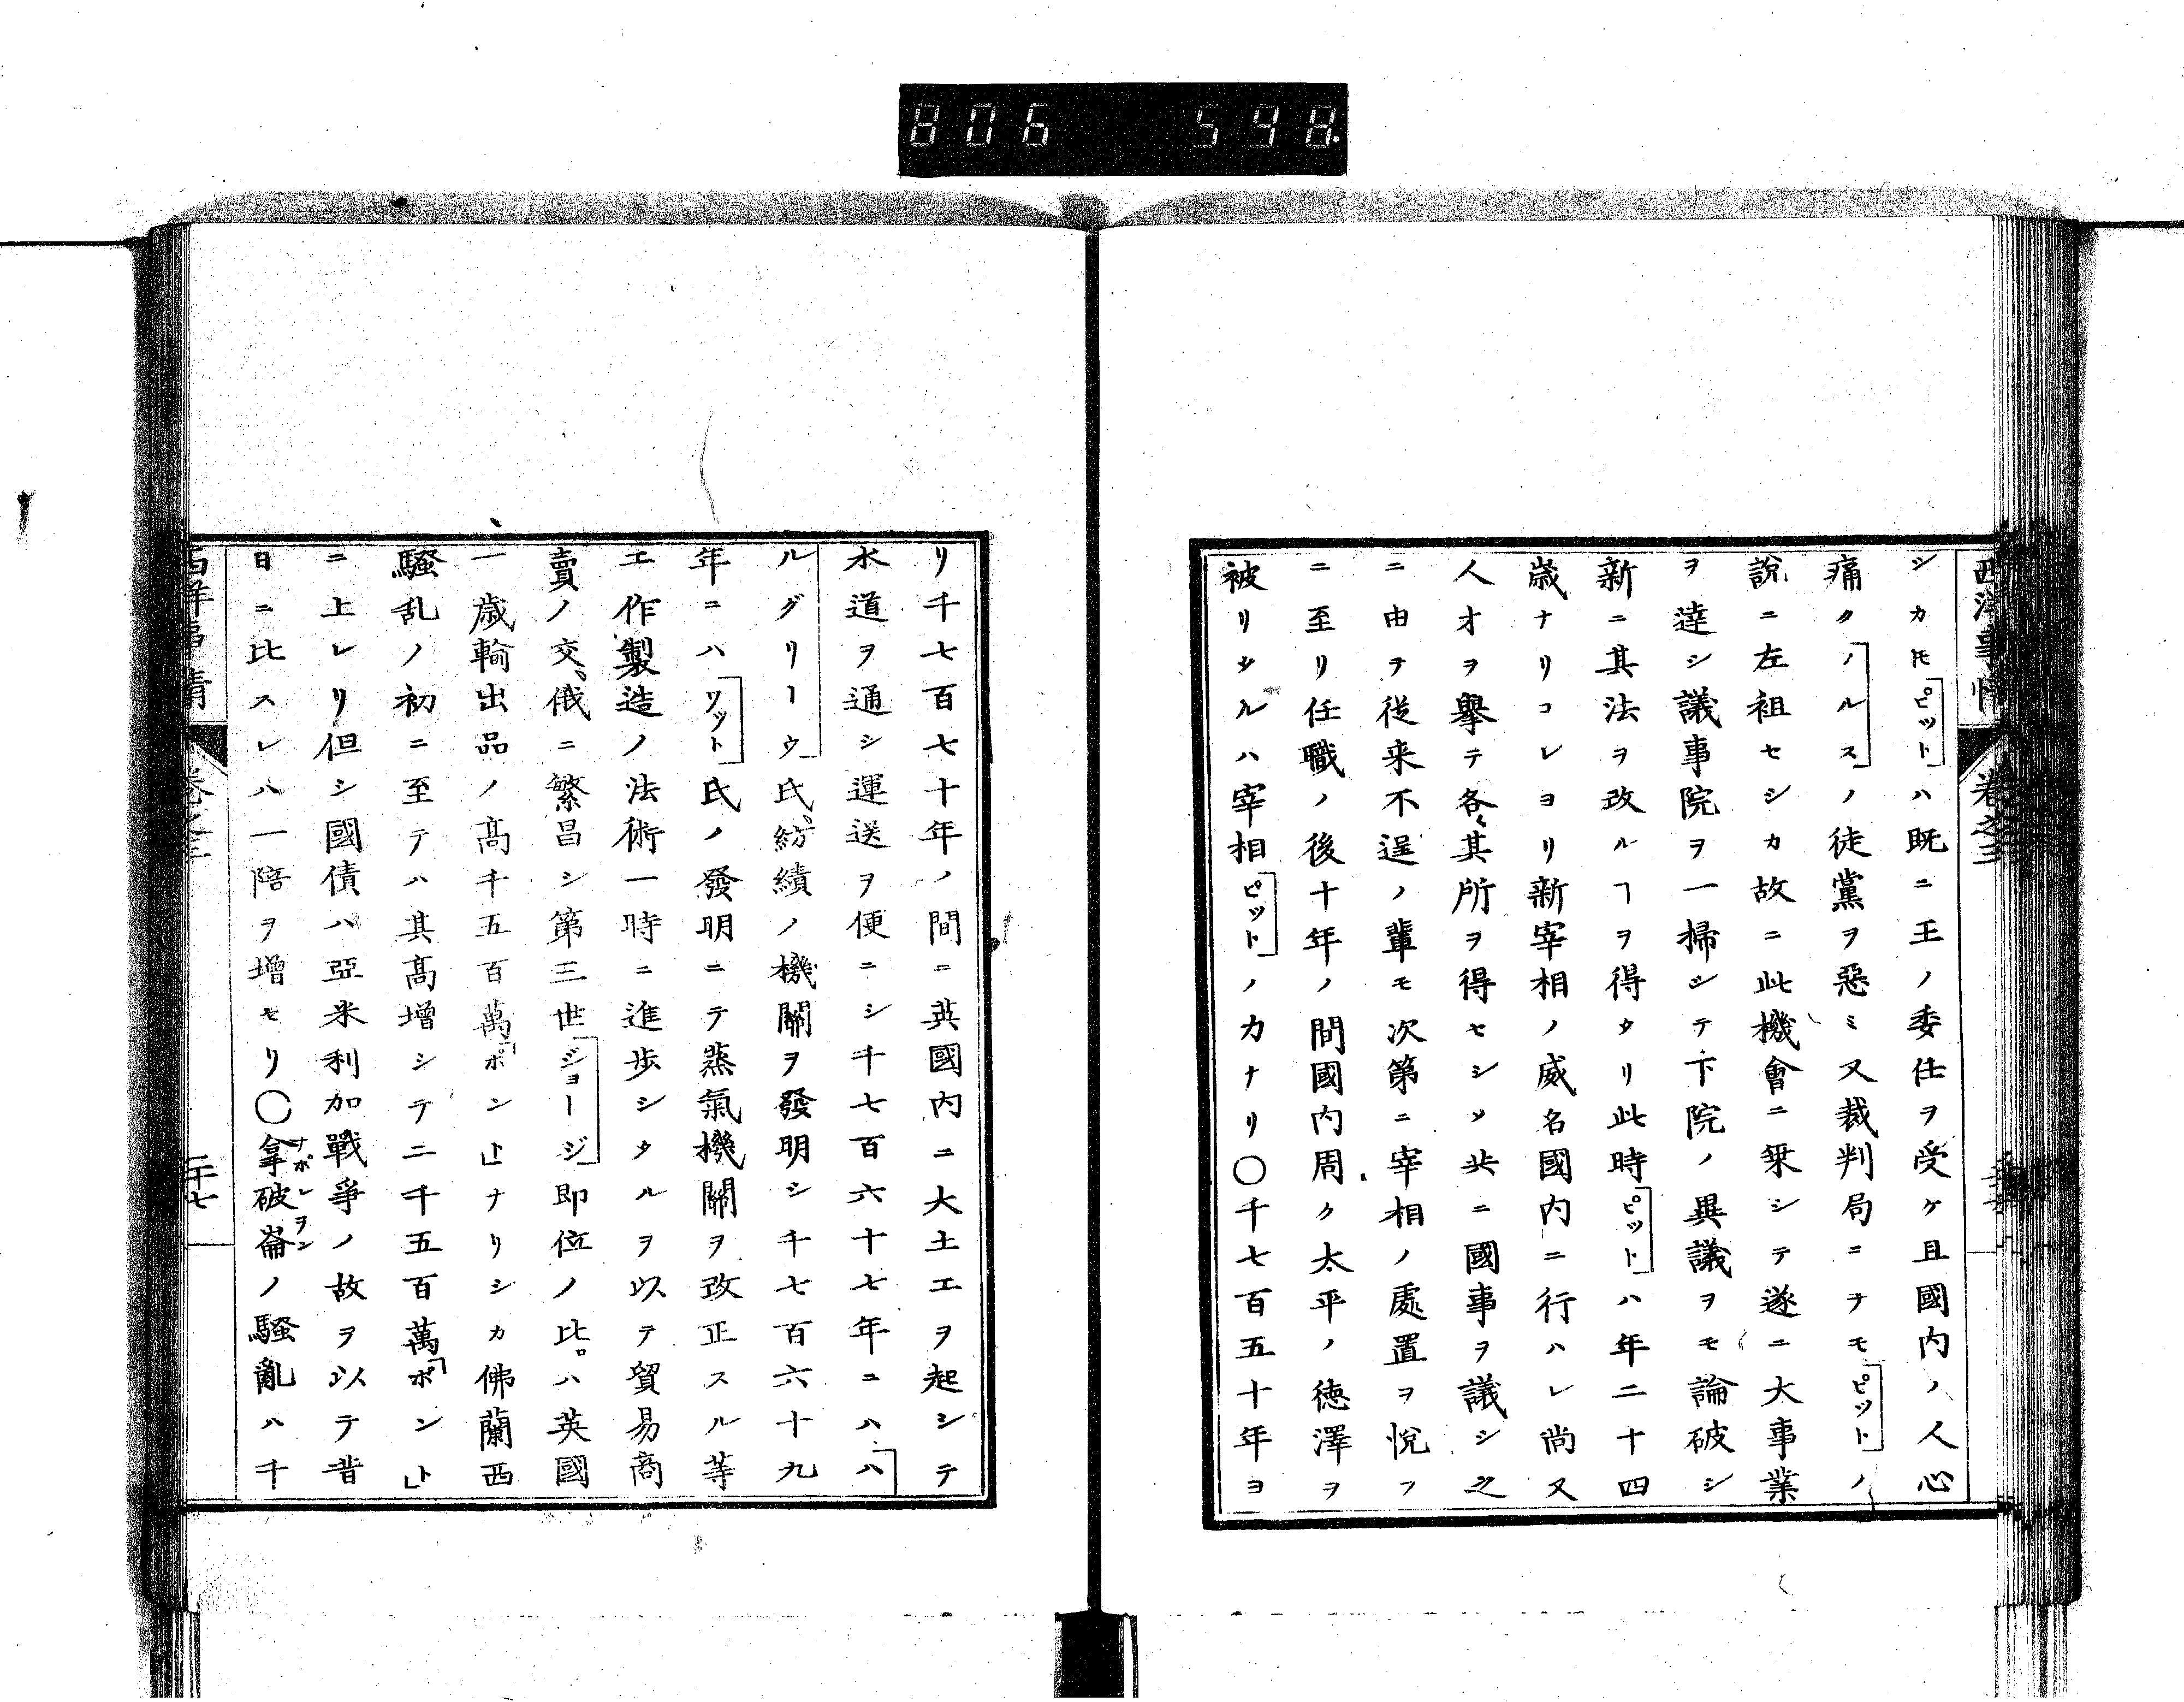 806 598
西洋事情 卷之三
シカ𪜈「ピット」ハ既ニ王ノ委任ヲ受ケ且國内ノ人心
痛ク「ノルス」ノ徒黨ヲ惡ミ又裁判局ニテモ「ピット」ノ
説ニ左袒セシカ故ニ此機會ニ乗シテ遂ニ大事業
ヲ達シ議事院ヲ一掃シテ下院ノ異議ヲモ論破シ
新ニ其法ヲ改ルヿヲ得タリ此時「ピット」ハ年二十四
歳ナリコレヨリ新宰相ノ威名國内ニ行ハレ尚又
人才ヲ擧テ各〻其所ヲ得セシメ共ニ國事ヲ議シ之
ニ由テ從来不逞ノ輩モ次第ニ宰相ノ處置ヲ悦フ
ニ至リ任職ノ後十年ノ間國内周ク太平ノ徳澤ヲ
被リタルハ宰相「ピット」ノ力ナリ〇千七百五十年ヨ
リ千七百七十年ノ間ニ英國内ニ大土工ヲ起シテ
水道ヲ通シ運送ヲ便ニシ千七百六十七年ニハ「ハ
ルグリーウ」氏紡績ノ機關ヲ發明シ千七百六十九
年ニハ「ワット」氏ノ發明ニテ蒸氣機關ヲ改正スル等
工作製造ノ法術一時ニ進歩シタルヲ以テ貿易商
賣ノ交、俄ニ繁昌シ第三世「ジョージ」即位ノ比ハ英國
一歳輸出品ノ高千五百萬「ポント」ナリシカ佛蘭西
騷乱ノ初ニ至テハ其高増シテ二千五百萬「ポント」
ニ上レリ但シ國債ハ亞米利加戰爭ノ故ヲ以テ昔
日ニ比スレハ一陪ヲ増セリ〇拿破崙ナポレヲンノ騷亂ハ千
西洋事情 卷之三 二十七